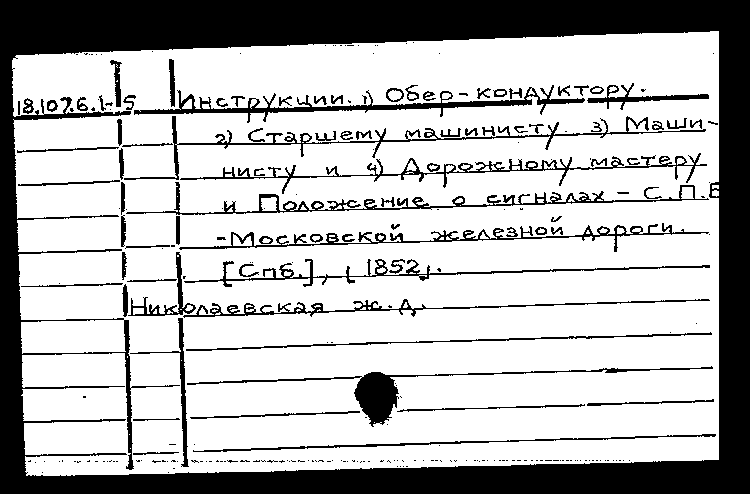 18.107.6.1-5 Инструкции. 1) Обер-кондуктору.
2) Старшему машинисту 3) Маши-
нисту и 4) Дорожному мастеру
и Положение о сигналах - С.П.Б
-Московской железной дороги.
[Спб.], [1852].
Николаевская ж.д.